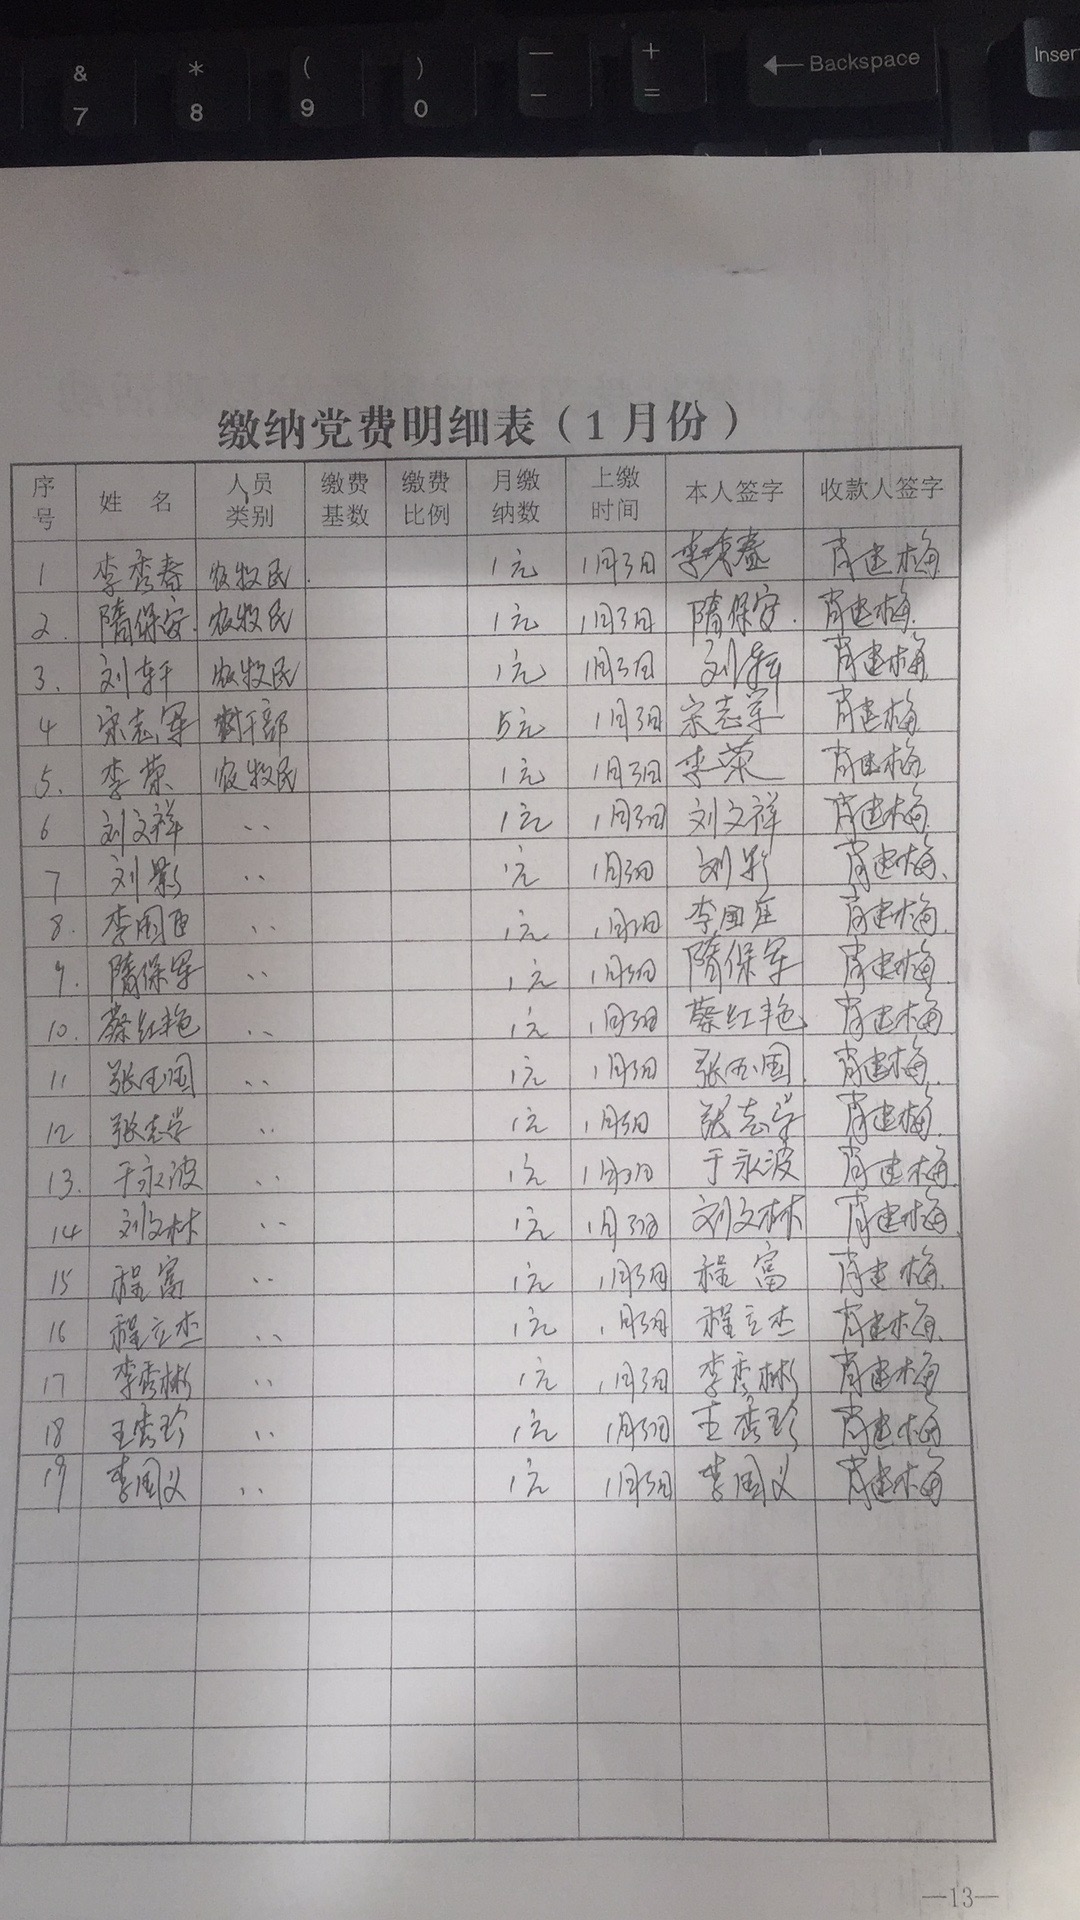 & * ( ) — +
7 8 9 0 - = ← Backspace Inser
缴纳党费明细表（1月份）
序号 姓名 人员类别 缴费基数 缴费比例 月缴纳数 上缴时间 本人签字 收款人签字
1 李秀春 农牧民 1元 1月3日 李秀春 肖建梅
2. 隋保安 农牧民 1元 1月3日 隋保安 肖建梅
3. 刘轩 农牧民 1元 1月3日 刘轩 肖建梅
4 宋志军 村干部 5元 1月3日 宋志军 肖建梅
5. 李荣 农牧民 1元 1月3日 李荣 肖建梅
6 刘文祥 〃 1元 1月3日 刘文祥 肖建梅
7 刘影 〃 1元 1月3日 刘影 肖建梅
8. 〃 1元 1月3日 肖建梅
9. 隋保军 〃 1元 1月3日 隋保军 肖建梅
10. 蔡红艳 〃 1元 1月3日 蔡红艳 肖建梅
11 〃 1元 1月3日 肖建梅
12 张志学 〃 1元 1月3日 张志学 肖建梅
13. 于永波 〃 1元 1月3日 于永波 肖建梅
14 刘文林 〃 1元 1月3日 刘文林 肖建梅
15 程富 〃 1元 1月3日 程富 肖建梅
16 程立杰 〃 1元 1月3日 程立杰 肖建梅
17 李秀彬 〃 1元 1月3日 李秀彬 肖建梅
18 王秀珍 〃 1元 1月3日 王秀珍 肖建梅
19 李国义 〃 1元 1月3日 李国义 肖建梅
—13—